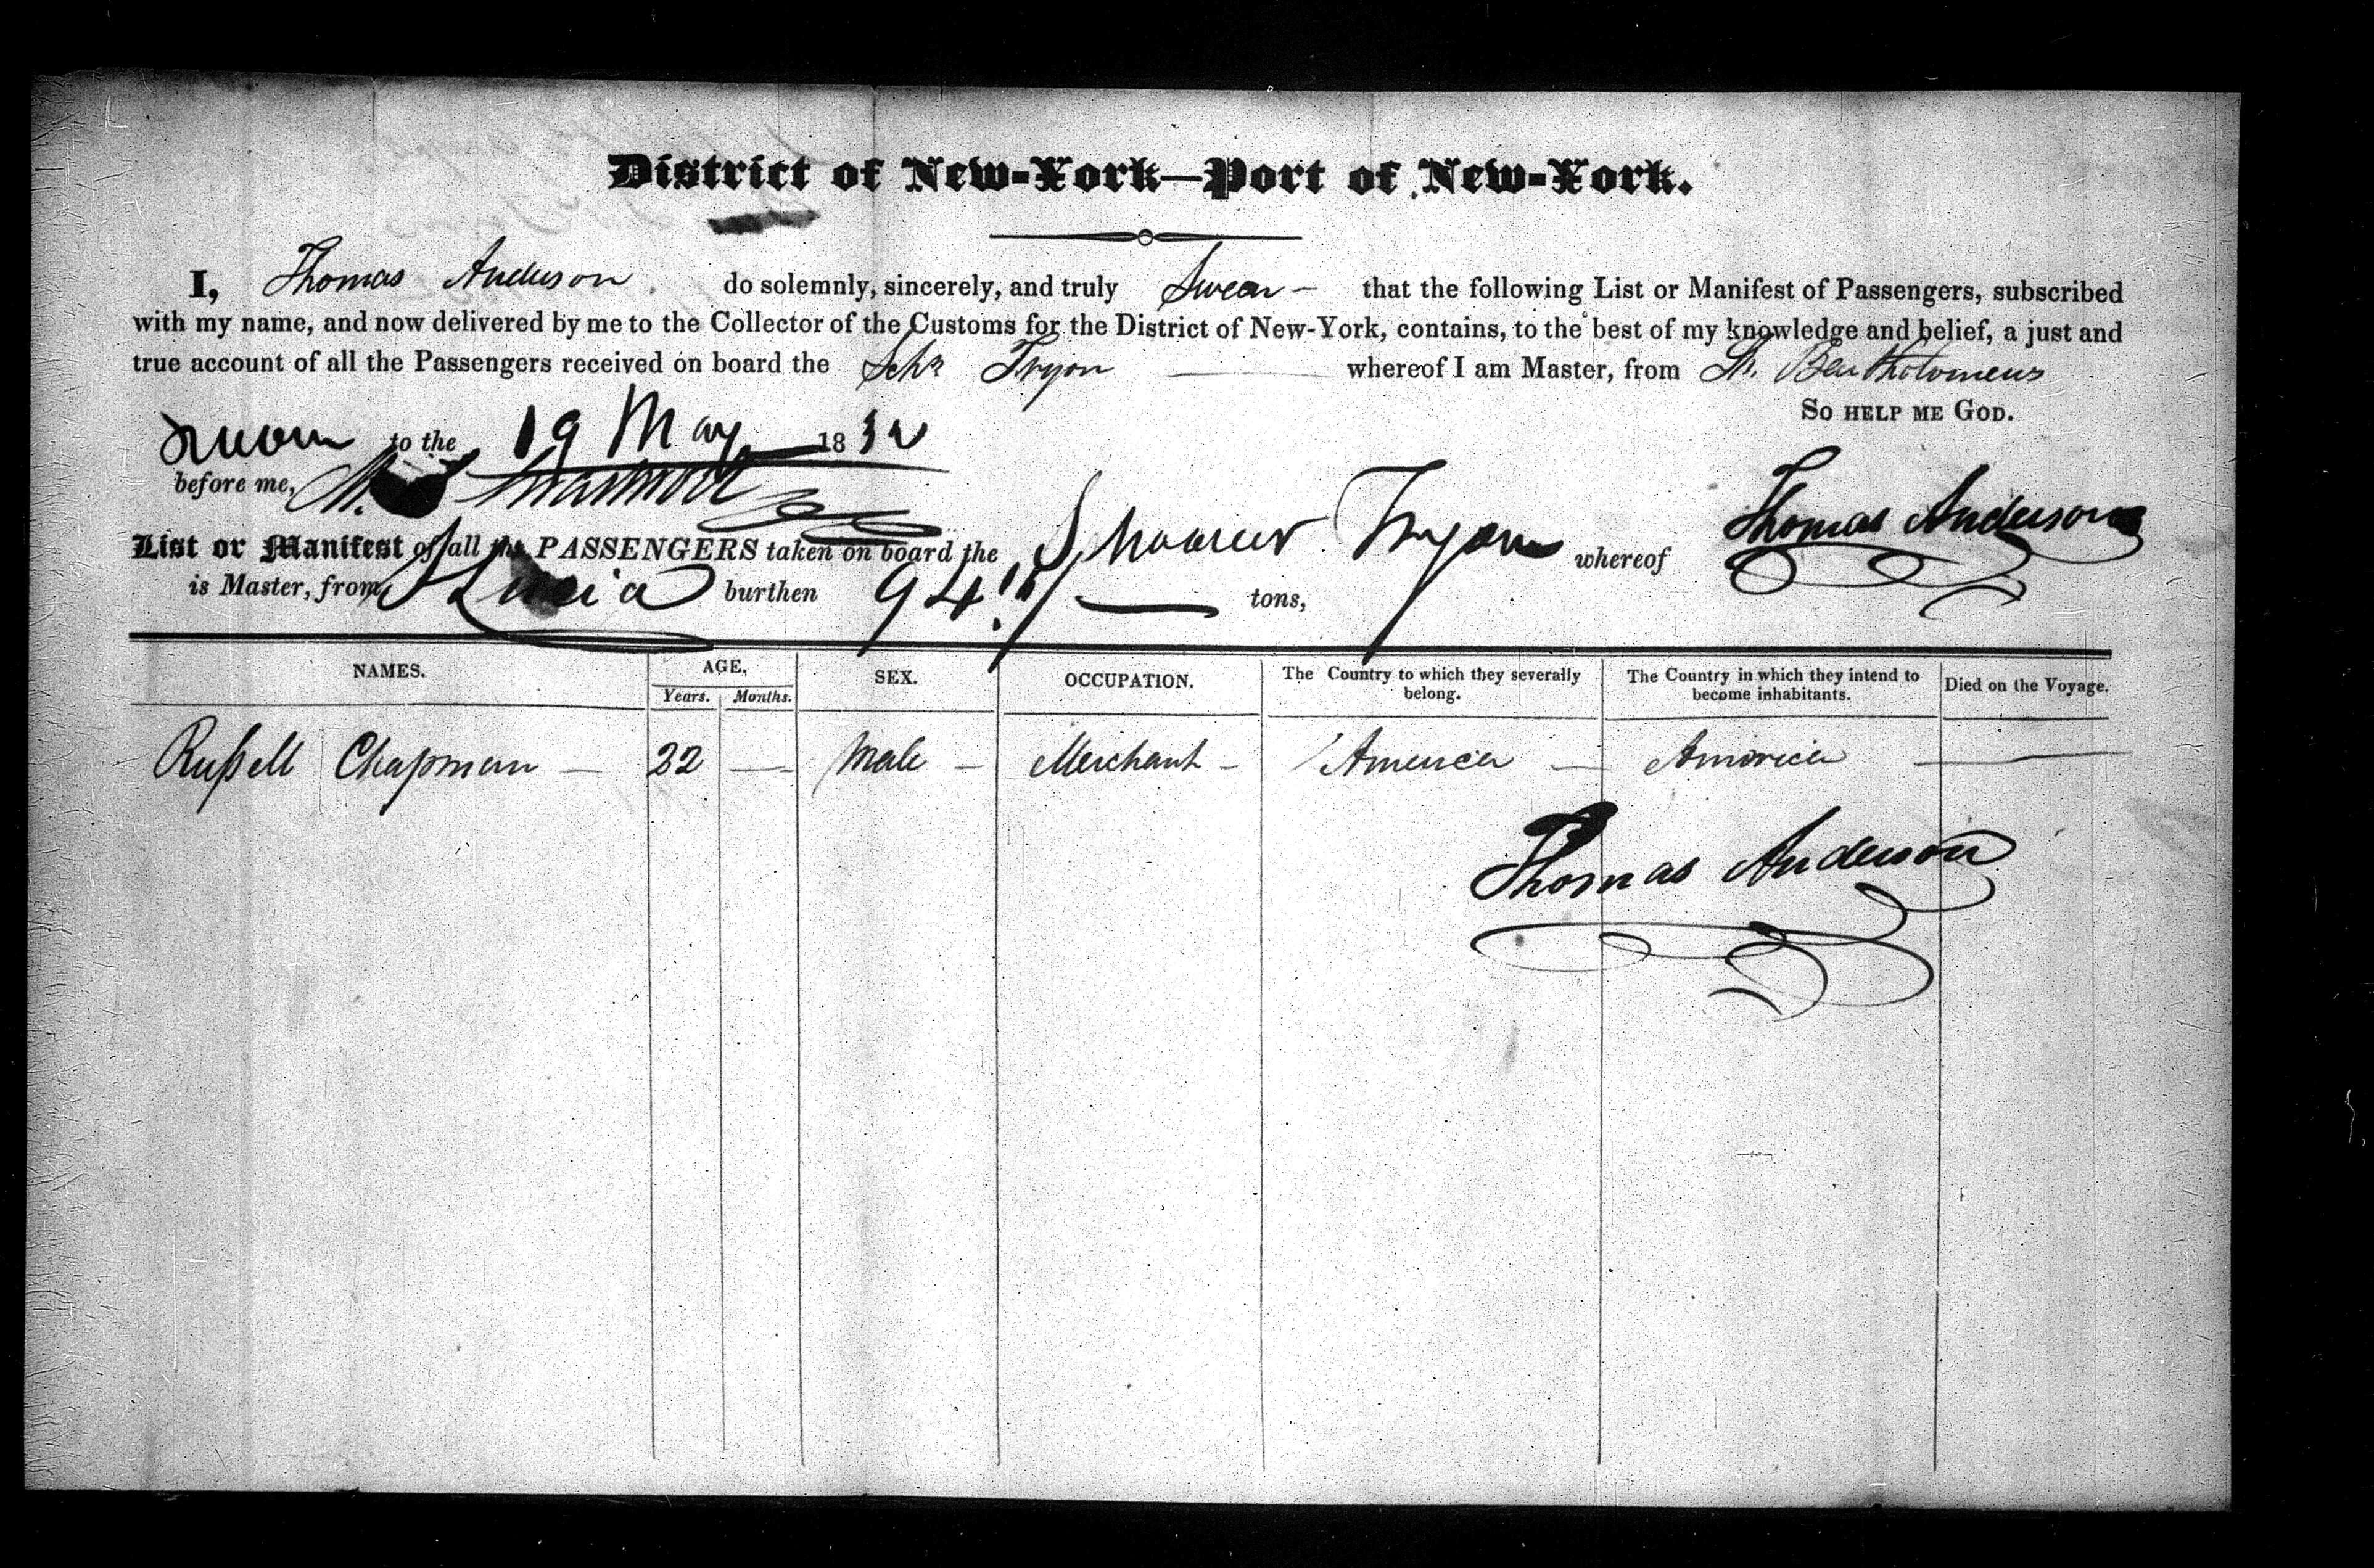 District of New-York—Port of New-York.
I, Thomas Anderson do solemnly, sincerely, and truly Swear – that the following List or Manifest of Passengers, subscribed
with my name, and now delivered by me to the Collector of the Customs for the District of New-York, contains, to the best of my knowledge and belief, a just and
true account of all the Passengers received on board the Schr Tryon whereof I am Master, from St. Bartholomews
So help me God.
Sworn to the 19 May 1832
before me,
Thomas Anderson
List or Manifest of all the PASSENGERS taken on board the Schooner Tryon whereof
is Master, from St Lucia burthen 94 tons,
NAMES. AGE, SEX. OCCUPATION. The Country to which they severally belong. The Country in which they intend to become inhabitants. Died on the Voyage.
Years. Months.
Russell Chapman – 22 — Male – Merchant – America — America —
Thomas Anderson